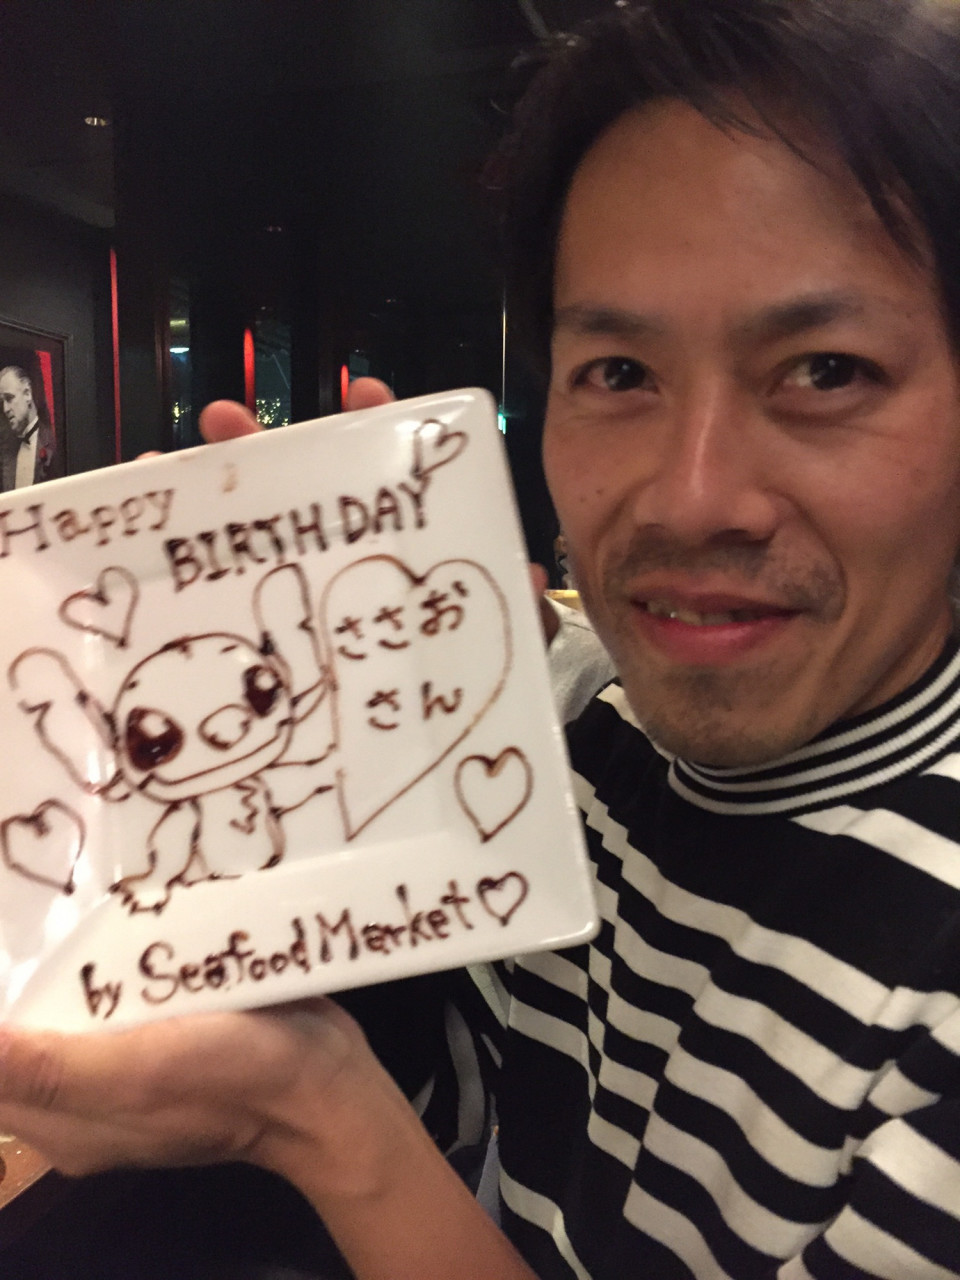 Happy
BIRTHDAY
ささお
さん
by Seafood Market